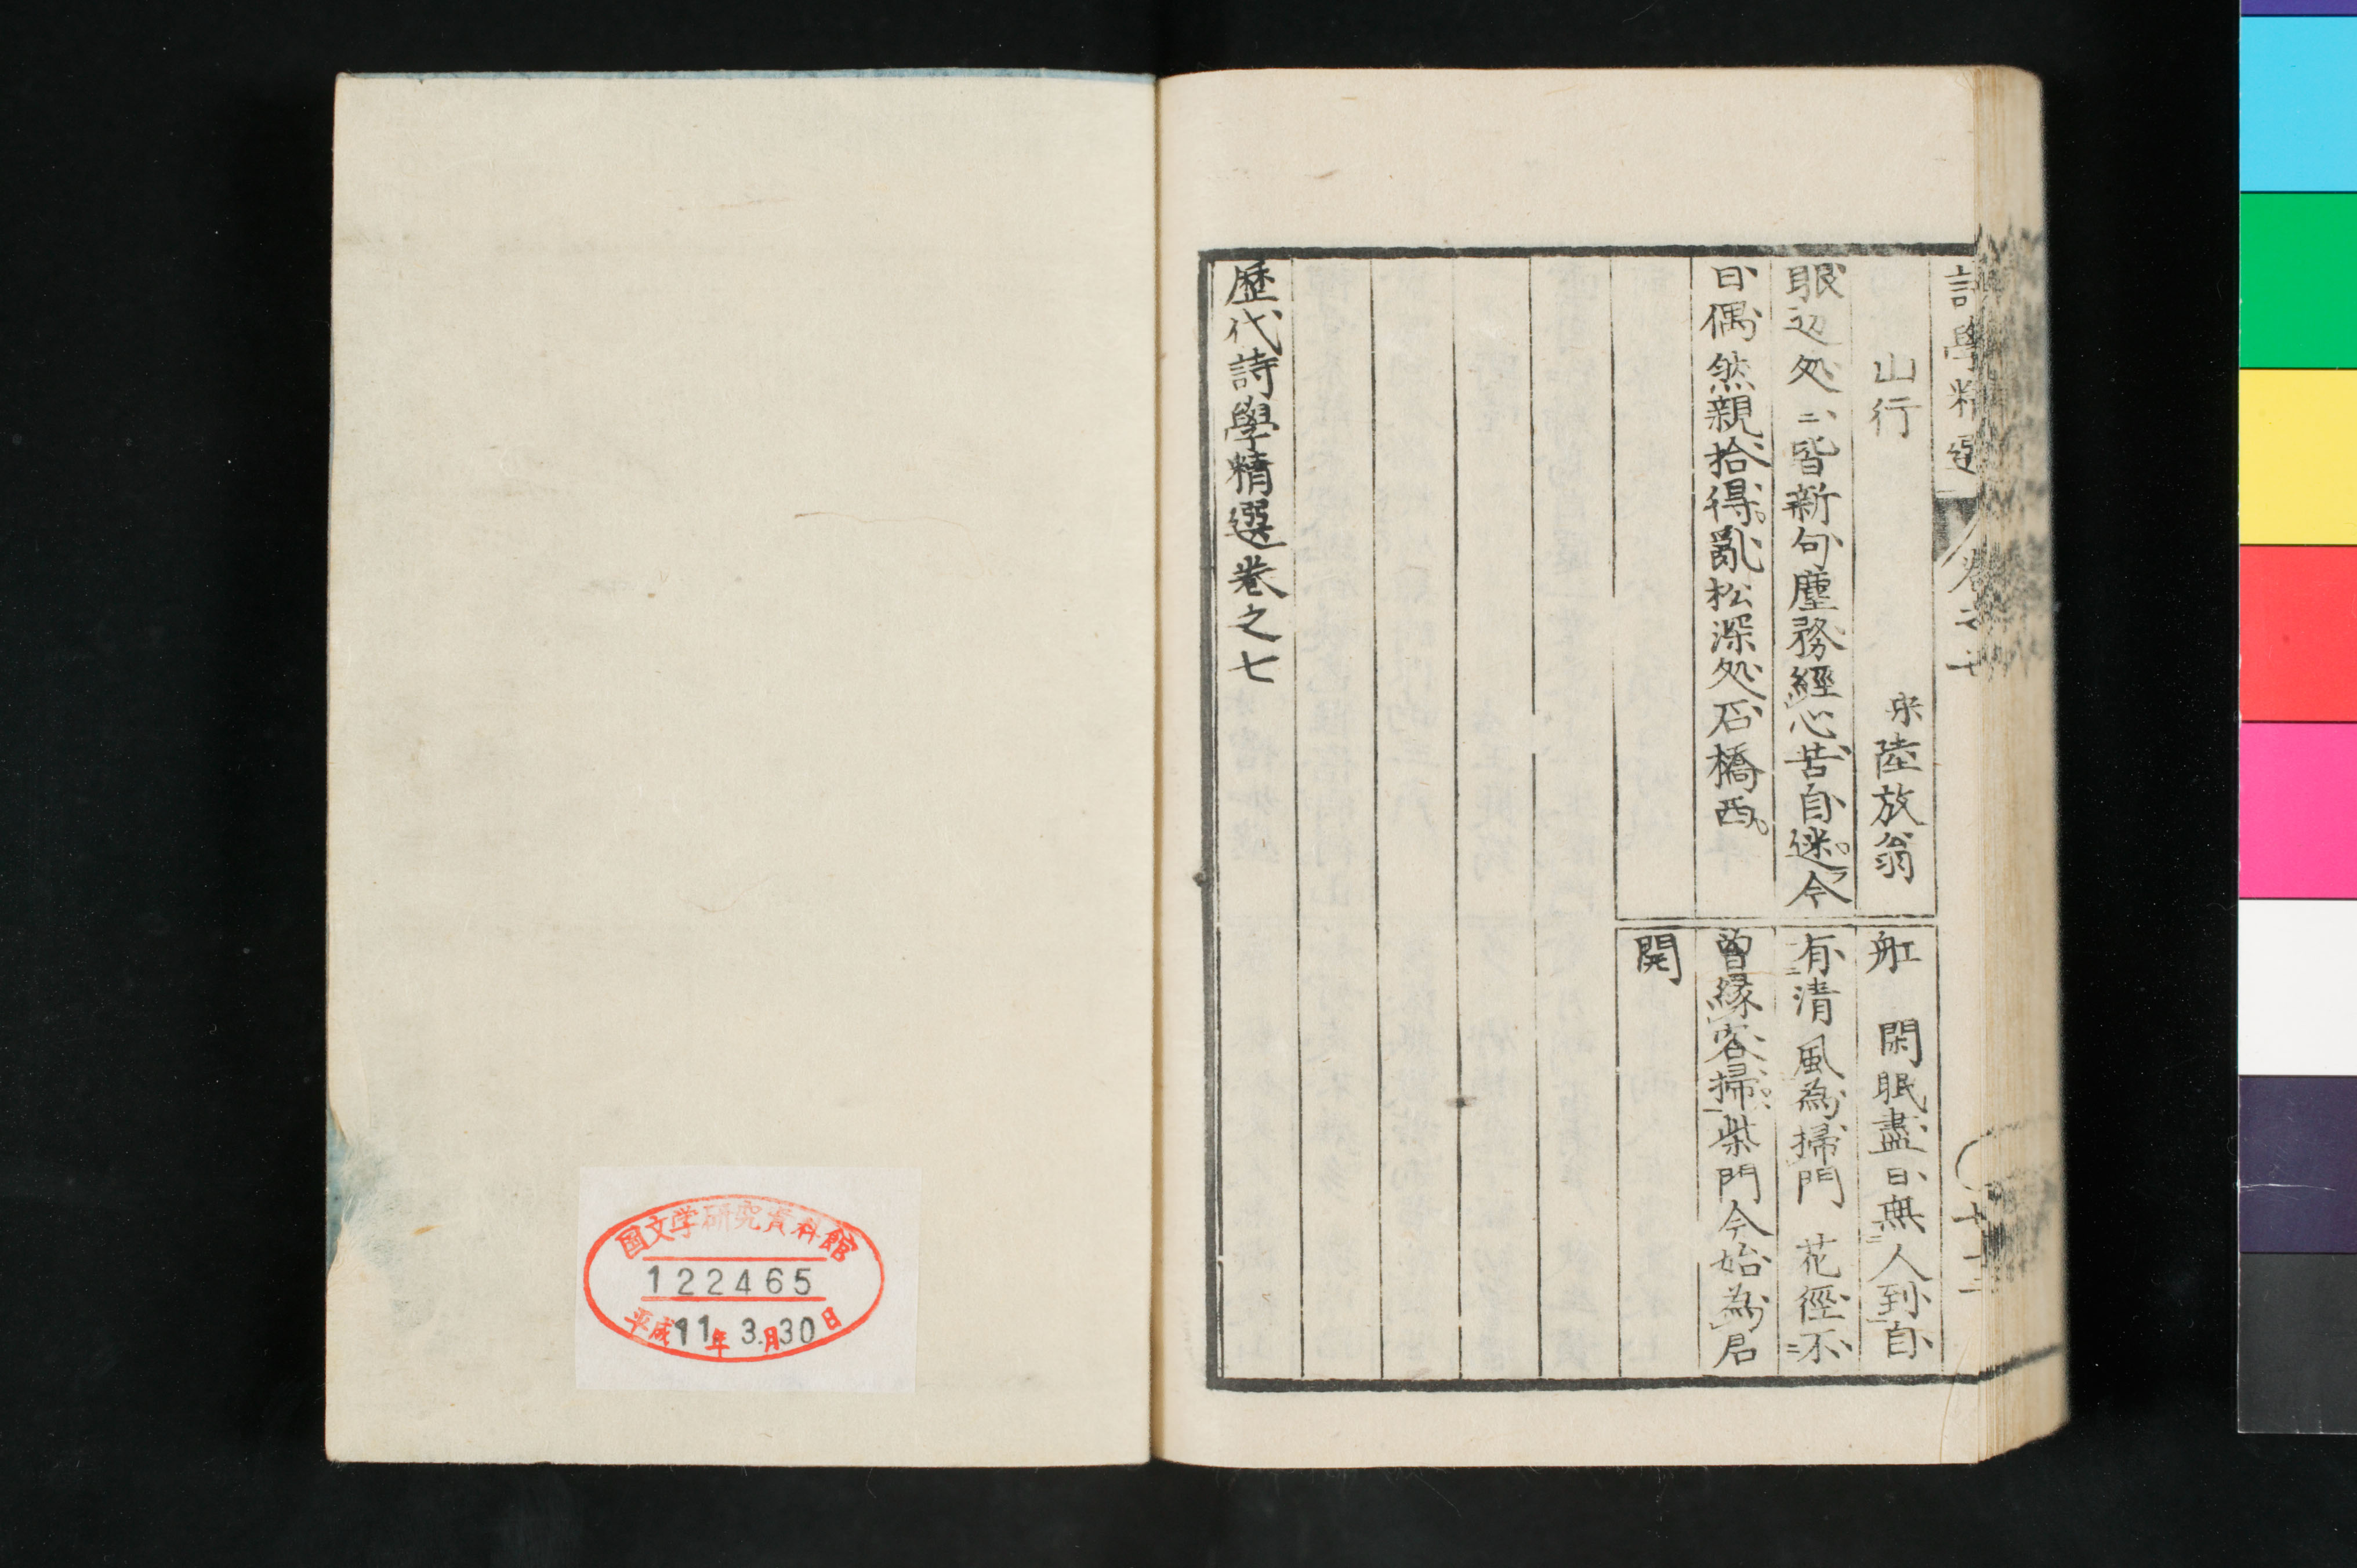 詩學精選 卷之七
山行 宋陸放翁
眼辺処〻皆新句塵務經心苦自迷今
日偶然親拾得亂松深処石橋西
舡 閑眠盡日無人到自
有清風為掃門 花徑不
曽縁客掃柴門今始為君
開
歷代詩學精選卷之七
国文学研究資料館
122465
平成11年3月30日